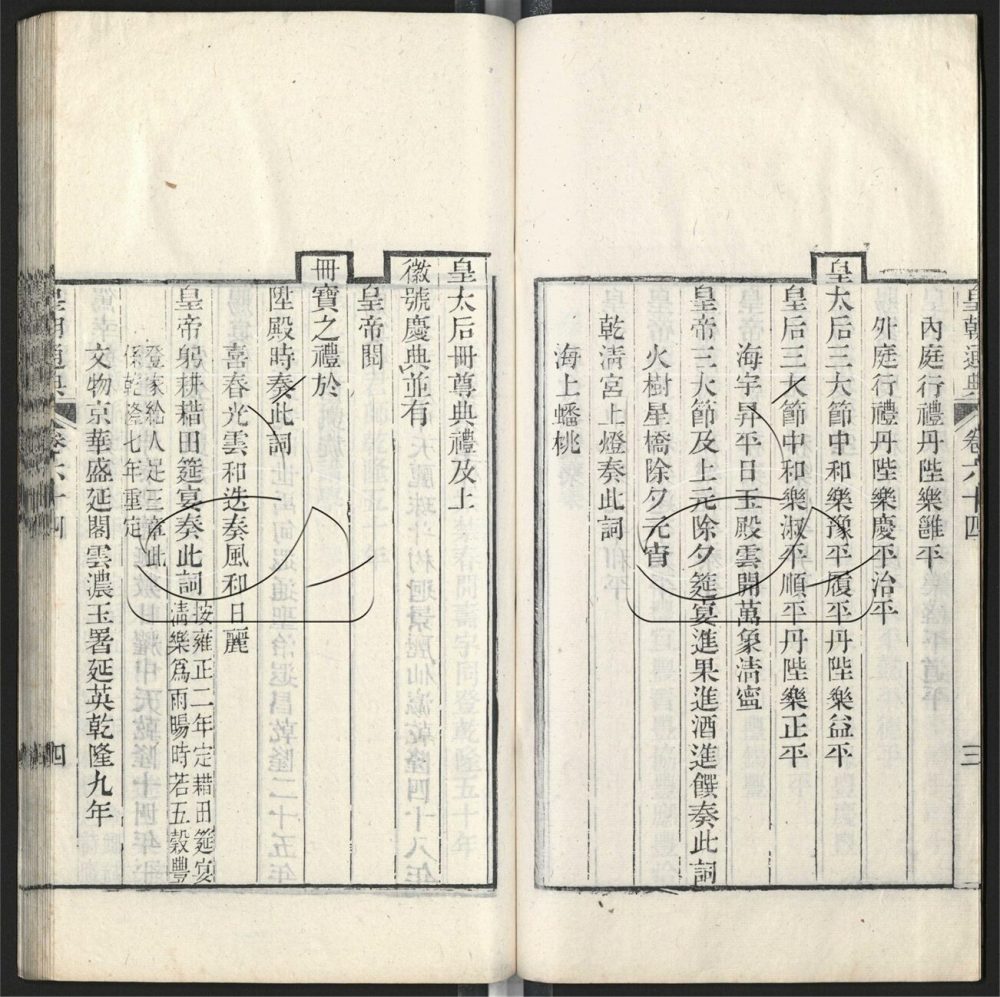 皇朝通典 卷六十四 三
內庭行禮丹陛樂雝平
外庭行禮丹陛樂慶平治平
皇太后三大節中和樂豫平履平丹陛樂益平
皇后三大節中和樂淑平順平丹陛樂正平
海宇昇平日玉殿雲開萬象清寧
皇帝三大節及上元除夕筵宴進果進酒進饌奏此詞
火樹星橋除夕元宵
乾清宮上燈奏此詞
海上蟠桃
皇太后冊尊典禮及上
徽號慶典並有
皇帝閤
冊寶之禮於
陞殿時奏此詞
喜春光雲和迭奏風和日麗
皇帝躬耕耤田筵宴奏此詞按雍正二年定耤田筵宴
清樂爲雨暘時若五穀豐
登家給人足三章此
係乾隆七年重定
文物京華盛延閣雲濃玉署延英乾隆九年
皇朝通典 卷六十四 四